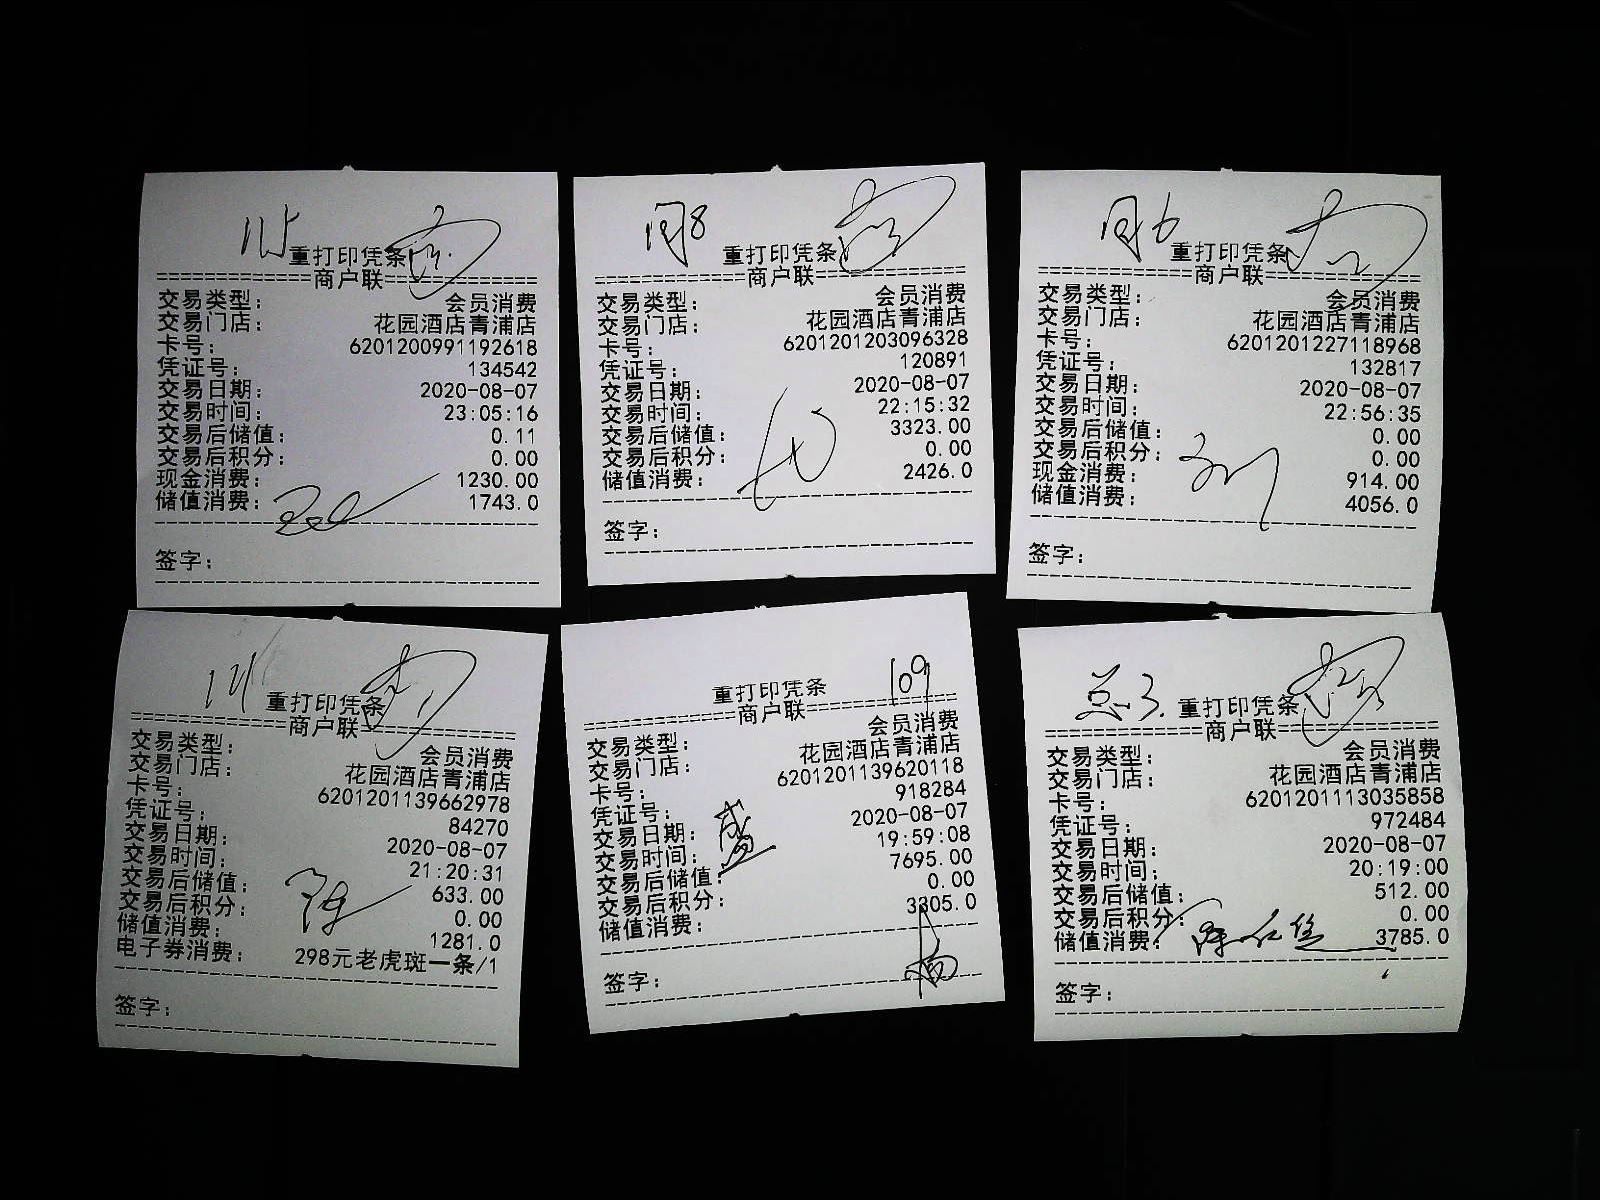 115
重打印凭条
商户联
交易类型： 会员消费
交易门店： 花园酒店青浦店
卡号： 6201200991192618
凭证号： 134542
交易日期： 2020-08-07
交易时间： 23:05:16
交易后储值： 0.11
交易后积分： 0.00
现金消费： 1230.00
储值消费： 1743.0
签字：
8
重打印凭条
商户联
交易类型： 会员消费
交易门店： 花园酒店青浦店
卡号： 6201201203096328
凭证号： 120891
交易日期： 2020-08-07
交易时间： 22:15:32
交易后储值： 3323.00
交易后积分： 0.00
储值消费： 2426.0
签字：
6
重打印凭条
商户联
交易类型： 会员消费
交易门店： 花园酒店青浦店
卡号： 6201201227118968
凭证号： 132817
交易日期： 2020-08-07
交易时间： 22:56:35
交易后储值： 0.00
交易后积分： 0.00
现金消费： 914.00
储值消费： 4056.0
签字：
重打印凭条
商户联
交易类型： 会员消费
交易门店： 花园酒店青浦店
卡号： 6201201139662978
凭证号： 84270
交易日期： 2020-08-07
交易时间： 21:20:31
交易后储值： 633.00
交易后积分： 0.00
储值消费： 1281.0
电子券消费： 298元老虎斑一条/1
签字：
109
重打印凭条
商户联
交易类型： 会员消费
交易门店： 花园酒店青浦店
卡号： 6201201139620118
凭证号： 918284
交易日期： 2020-08-07
交易时间： 19:59:08
交易后储值： 7695.00
交易后积分： 0.00
储值消费： 3305.0
盛
签字：
杨
重打印凭条
商户联
交易类型： 会员消费
交易门店： 花园酒店青浦店
卡号： 6201201113035858
凭证号： 972484
交易日期： 2020-08-07
交易时间： 20:19:00
交易后储值： 512.00
交易后积分： 0.00
储值消费： 3785.0
签字：